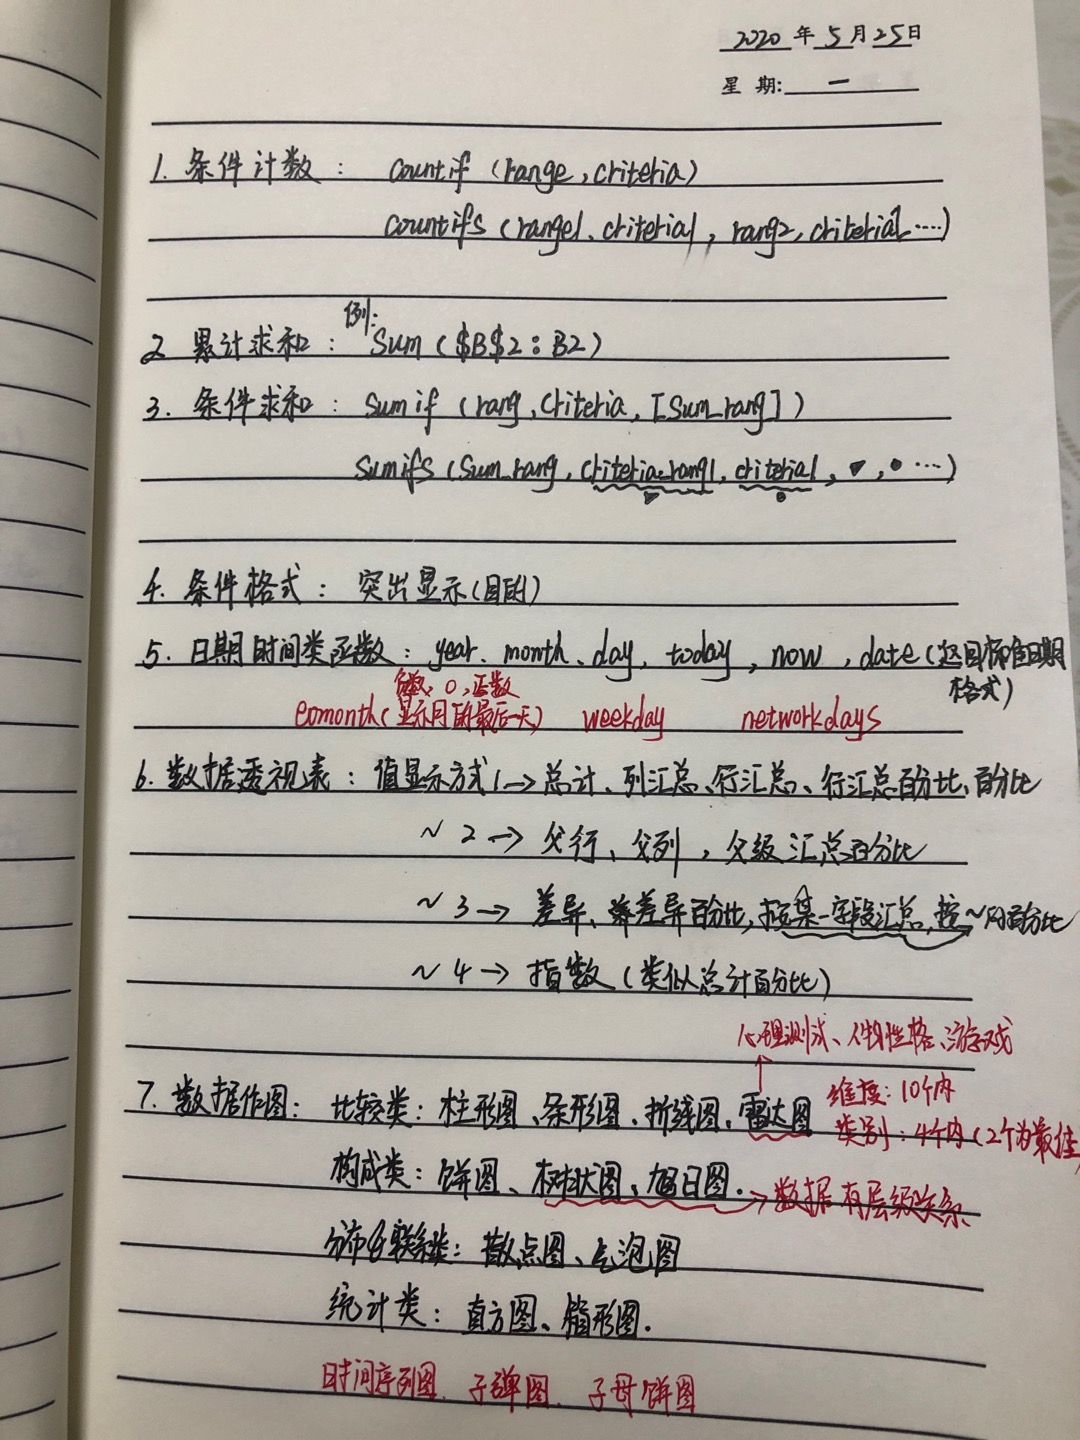 2020年5月25日
星 期: 一
1. 条件计数： countif (range,criteria)
countifs (range1、criteria1, rang2, criteria2....)
例:
2 累计求和： Sum ($B$2:B2)
3. 条件求和： Sumif (rang,criteria,[Sum_rang])
Sumifs (Sum_rang, criteria_rang1, criteria1, ▼, ● ...)
▼ ●
4. 条件格式： 突出显示(目的)
5. 日期时间类函数： year、month、day、today, now, date (返回标准日期
格式)
负数, 0, 正数
eomonth(显示月的最后一天) weekday networkdays
6. 数据透视表： 值显示方式1→总计、列汇总、行汇总、行汇总百分比、百分比
~ 2 → 父行、父列, 父级汇总百分比
~ 3 → 差异、差异百分比, 按某一字段汇总, 按~的百分比
~ 4 → 指数 (类似总计百分比)
心理测试、人物性格、游戏
7. 数据作图： 比较类：柱形图、条形图、折线图、雷达图
维度：10个内
类别：4个内 (2个为最佳
构成类：饼图、树状图、旭日图. → 数据有层级关系
分布&联系类：散点图、气泡图
统计类：直方图、箱形图.
时间序列图、子弹图、子母饼图